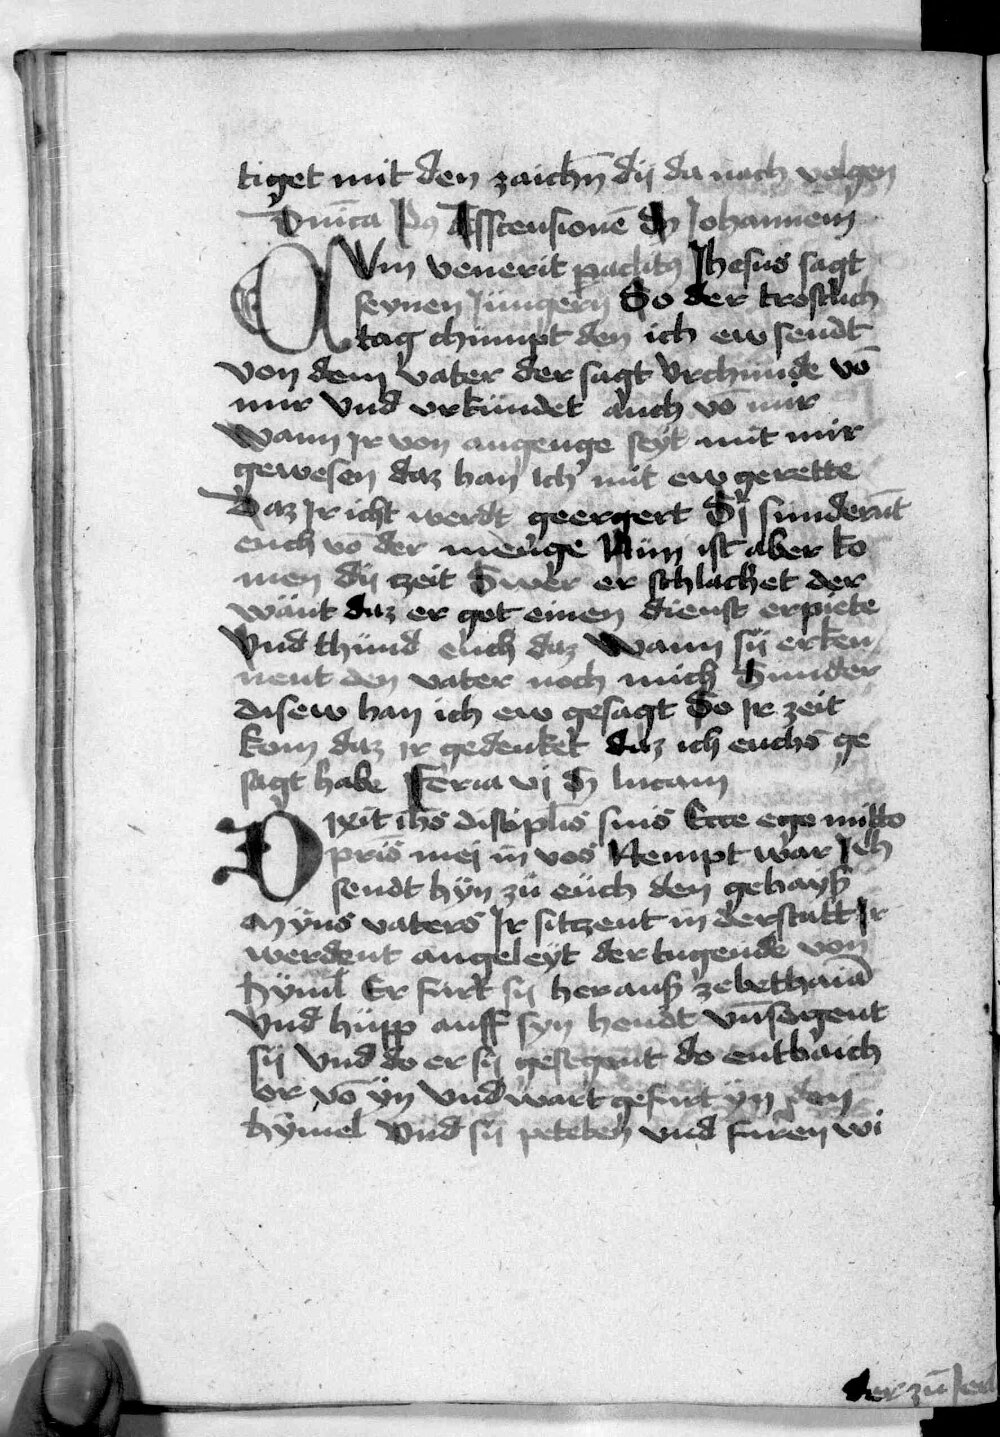 tiget mit den zaichn̄ dij da nach volgen
Dnīca Pꝰ Asscensionē S Johannem
CVm venerit paclitꝰ Jhesus sagt
seynen Jungern So der trostlich
tag chumpt den ich ew sendt
von dem vater der sagt vrchunde vō
mir vnd vrkundet auch vō mir
wann Jr von angenge seyt mit mir
gewesen daz han ich mit ew gerette
Daz Jr icht werdt geergert Sy sunderūt
euch vō der menge Nün ist aber ko
men dij tzeit Swer er schlachet der
wänt daz er got einen dienst erpiete
Vnd thünd euch daz wann sij erken
nent den vater noch mich Sunder
disew han ich ew gesagt So Jr zeit
kom daz ir gedenket daz ich euchs ge
sagt habe Feria vj S lucam
Dixit ihs disciplis suis Ecce ego mitto
pris mei in vos Nempt war Ich
sendt hyn zü eüch den gehayß
Myns vaters Jr sitzent in der statt Jr
werdent angeleyt der tugende von
hyml Er furt sij herauß ze bethaniā
Vnd hüpp auff syn hendt vn̄ segent
sij Vnd do er sij gesegent do entwaich
er vō yn Vnd wart gefurt yn den
hymel Vnd sij peteten vnd furen wi
der zū Jeru